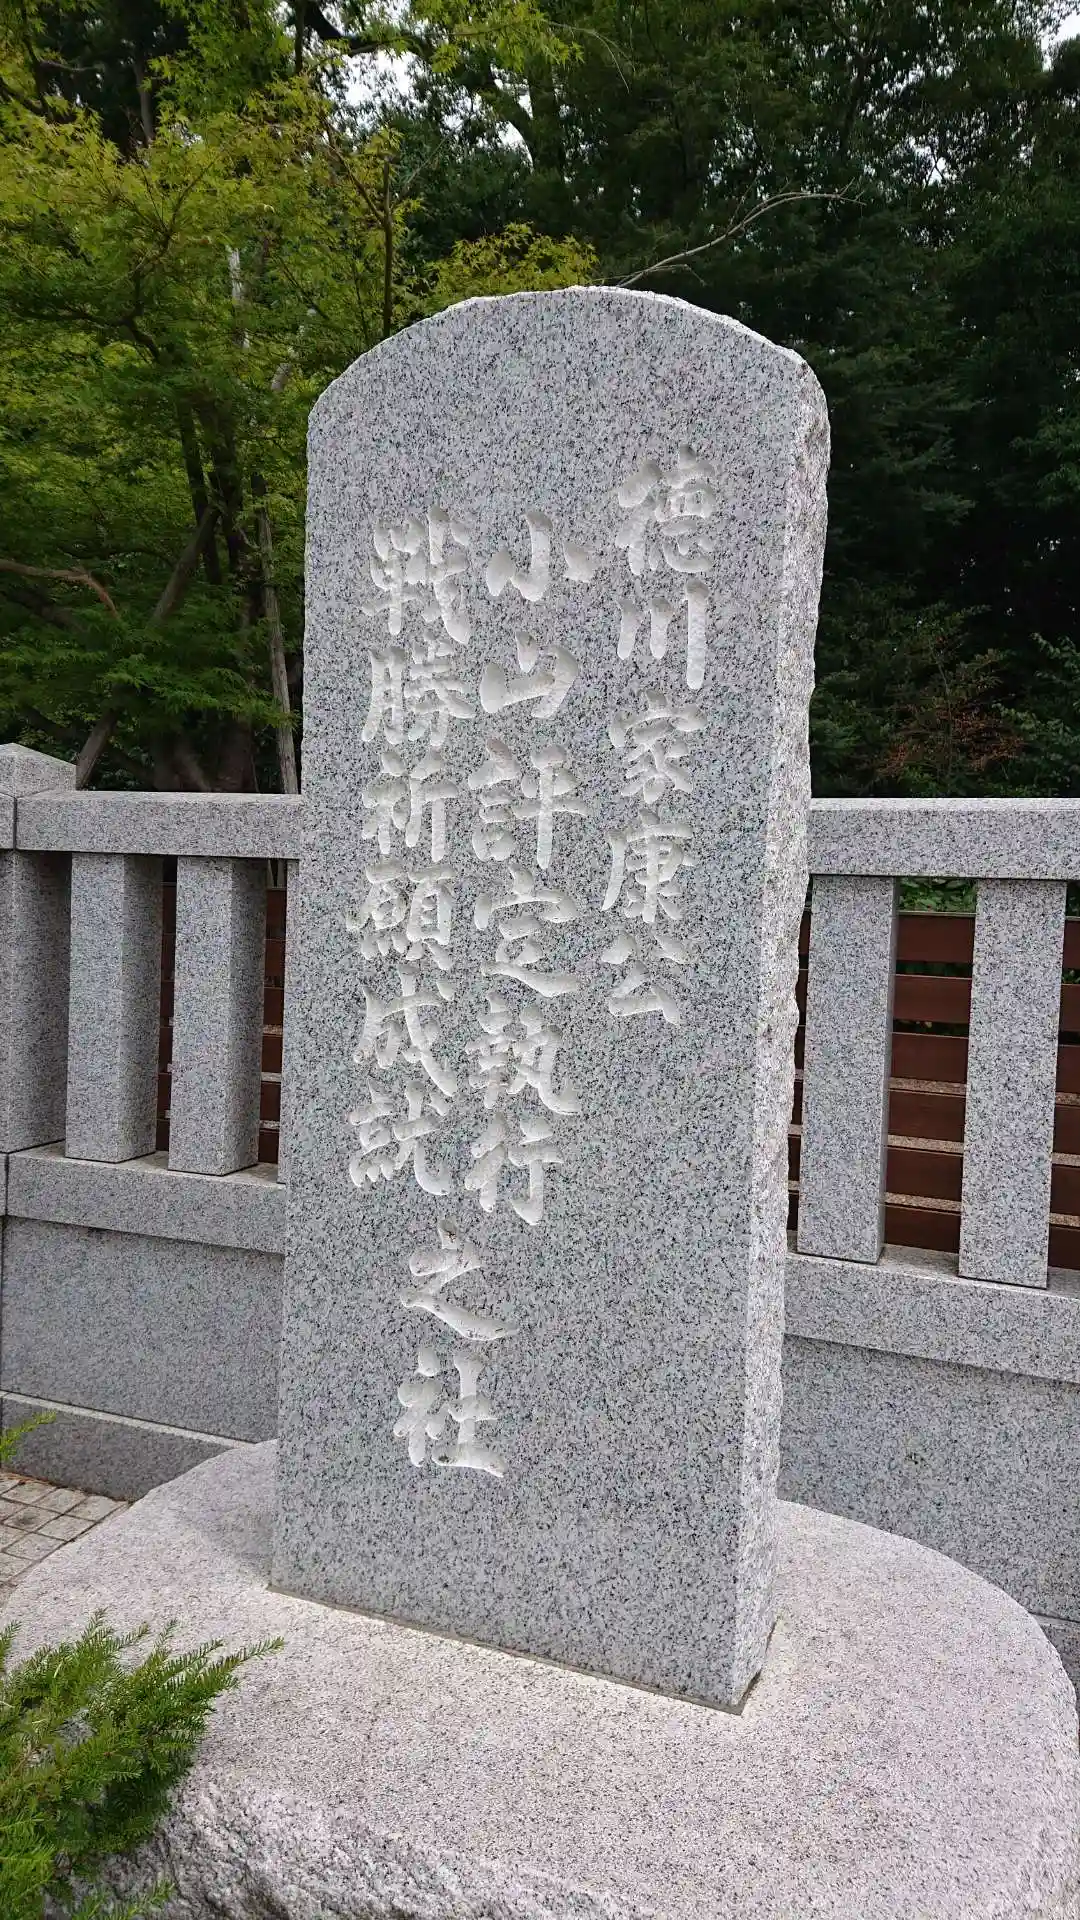 德川家康公
小山評定執行
戦勝祈願成就
之社